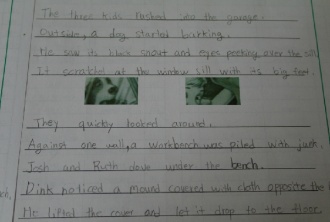 The three kids rushed into the garage.
Outside, a dog started barking.
He saw its black snout and eyes peeking over the sill
It scratched at the window sill with its big feet.
They quickly looked around.
Against one wall, a workbench was piled with junk.
Josh and Ruth dove under the bench.
Dink noticed a mound covered with cloth opposite the
He lifted the cover and let it drop to the floor.